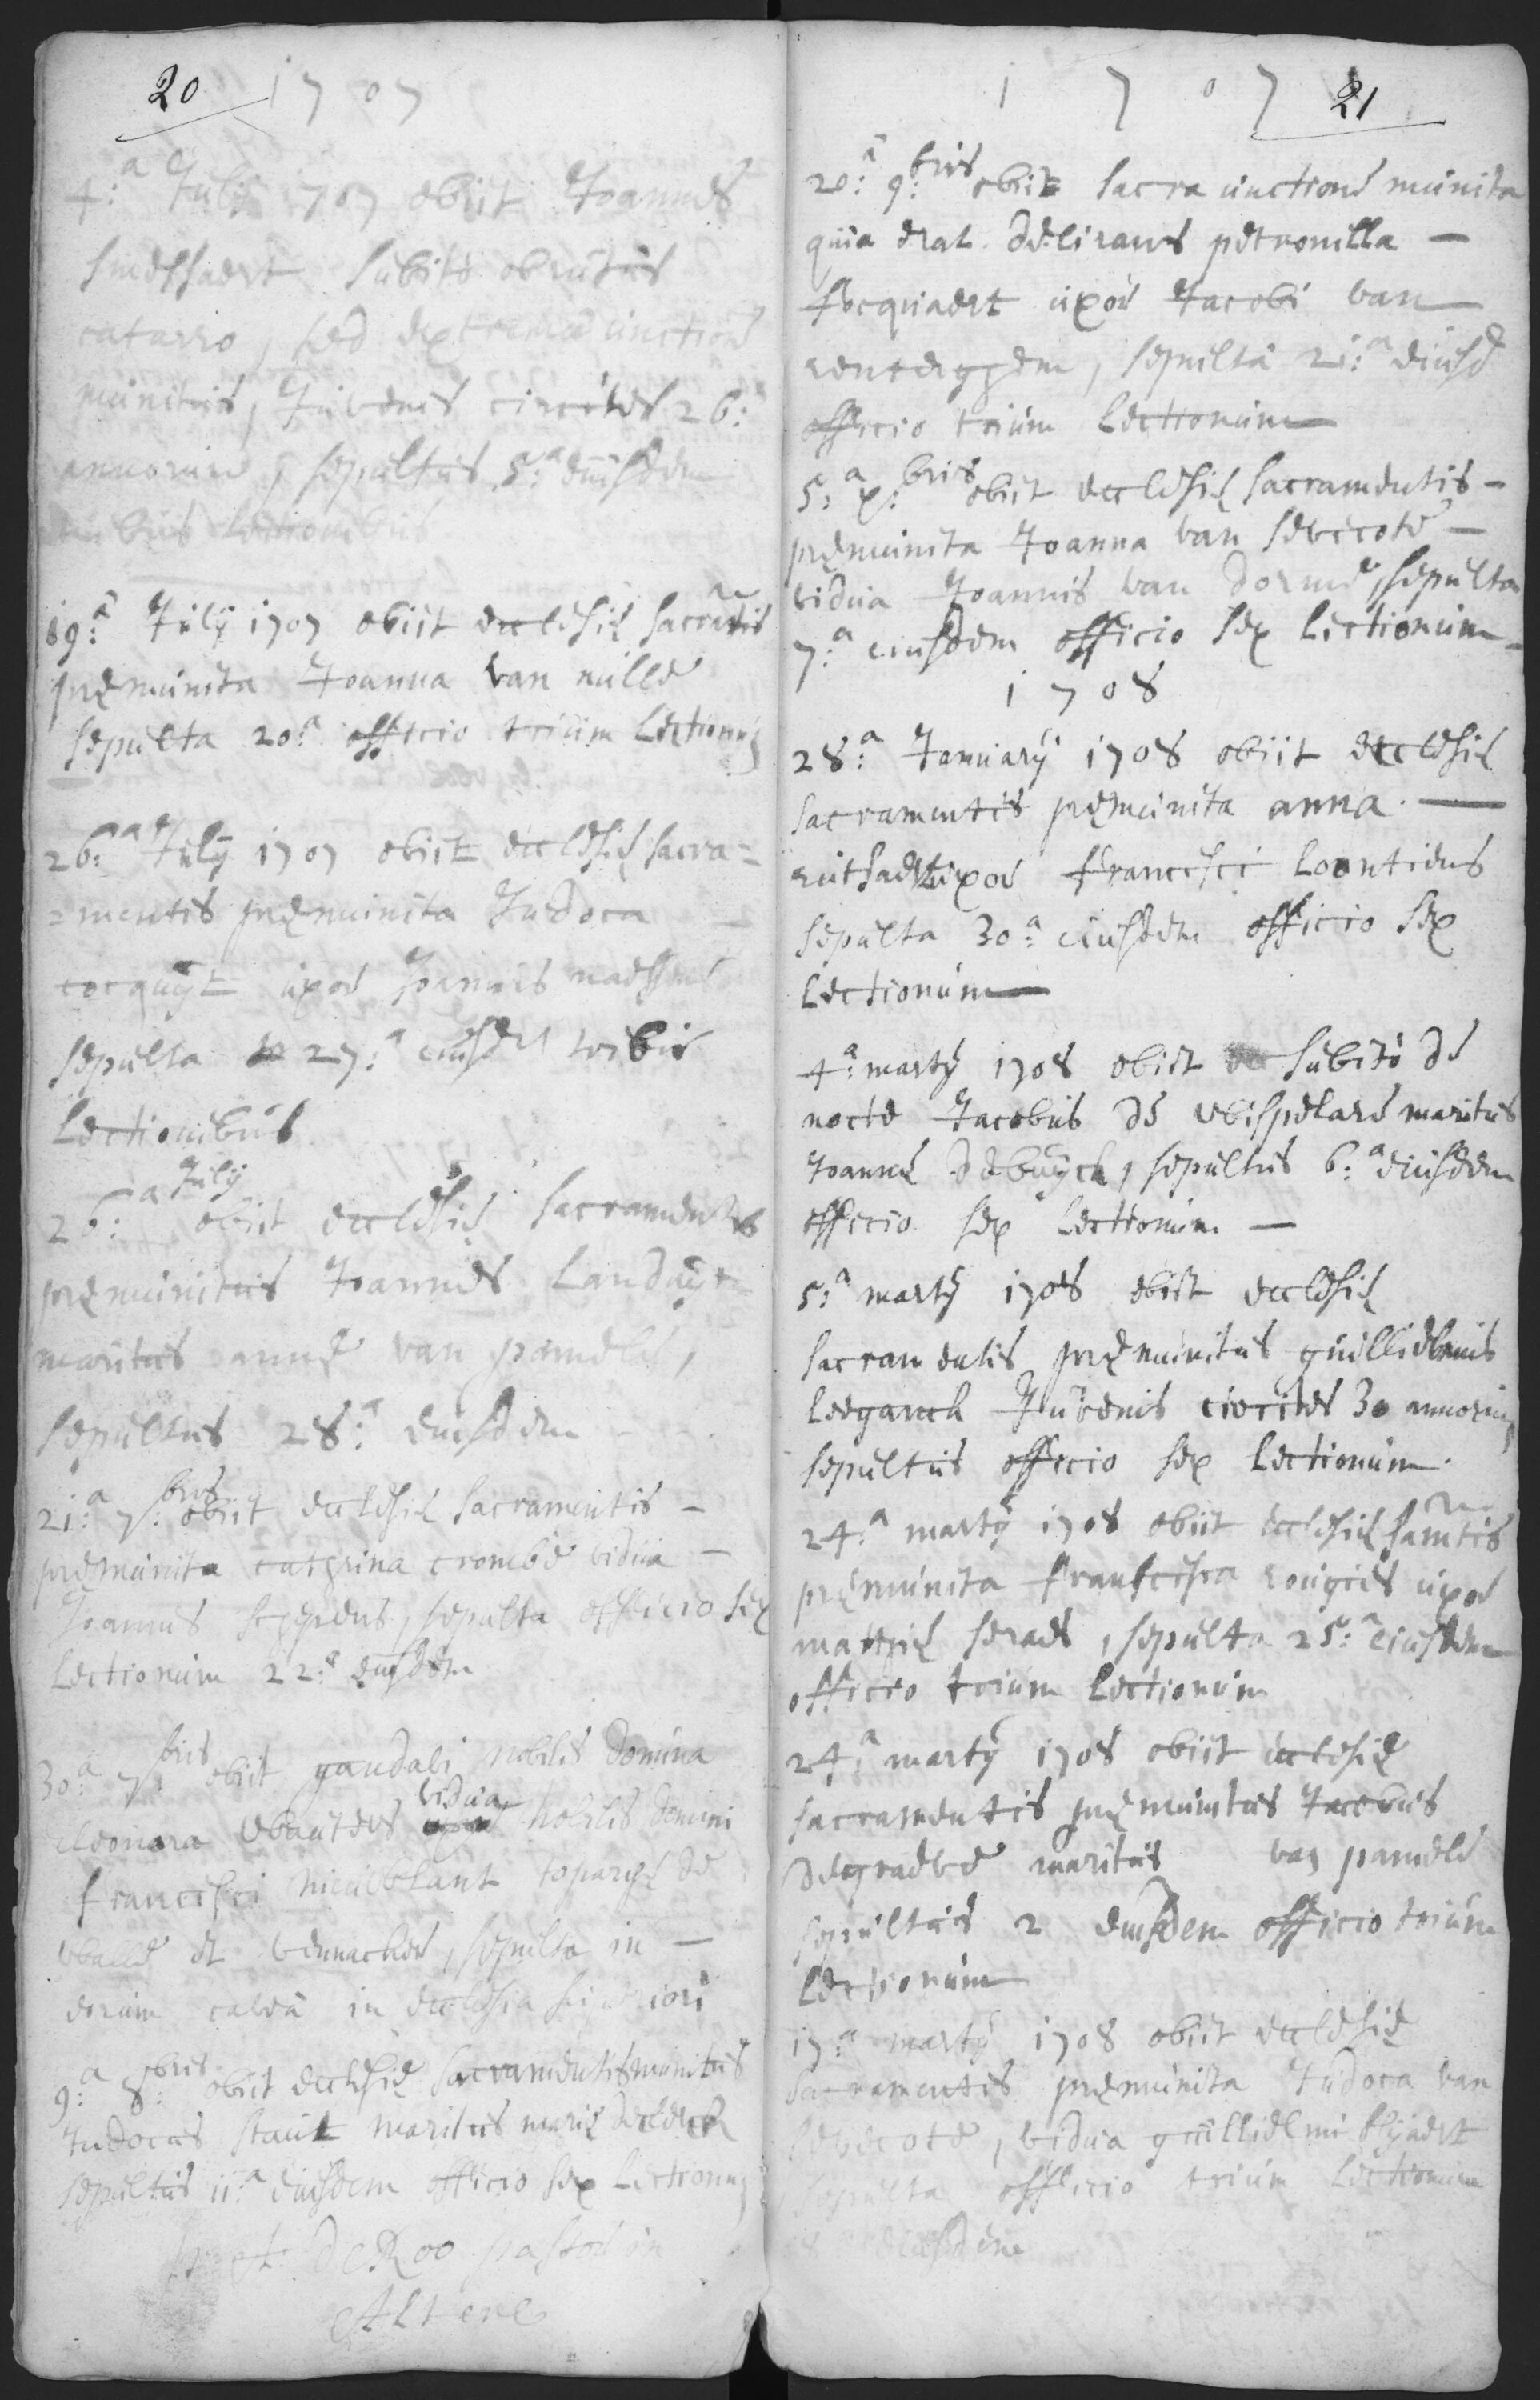 20 1707
4:a July 1707 obiit Joannes
smessaert subito obrutus
catarro, sed extrema unctione
munitus, Juvenis circiter 26:
annorum, sepultus 5:a eiusdem
tribus lectionibus
19:a July 1707 obiit ecclesiæ sacratis
præmunita Joanna van nulle
sepulta 20:a officio trium Lectionum
26:a July 1707 obiit ecclesiæ sacra=
=mentis præmunita Judoca
cocquyt uxor Joannis
sepulta 27:a eiusdem tribus
Lectionibus
26:a July obiit ecclesiæ sacramentis
præmunitus Joannes Landuyt
maritus annæ van pamele,
sepultus 28:a eiusdem
21:a 7:bris obiit ecclesiæ sacramentis –
præmunita catharina crombe vidua –
Joannis schepens, sepulta officio sex
Lectionum 22:a eiusdem
30:a 7:bris obiit gandavi nobilis Domina
eleonora vidua nobilis Domini
francisci toparchæ de
et sepulta in –
in ecclesia
9:a 8:bris obiit ecclesiæ sacramentis munitus
Judocus staut maritus mariæ declerck
sepultus 11:a eiusdem officio sex Lectionum
De Roo pastor in
Altere
1707 21
20:a 9:bris obiit sacra unctione munita
quia erat delirans petronilla –
focquaert uxor Jacobi van
renterggem, sepulta 21:a eiusd
officio trium Lectionum
5:a x:bris obiit ecclesiæ sacramentis –
præmunita Joanna van sevecote –
vidua Joannis van Dorme, sepulta
7:a eiusdem officio sex Lectionum –
1708
28:a January 1708 obiit ecclesiæ
sacramentis præmunita anna –
rutsaert uxor francisci Loontiens
sepulta 30:a eiusdem officio sex
Lectionum
4:a marty 1708 obiit subito de
nocte Jacobus de wispelare maritus
Joannæ debuyck, sepultus 6:a eiusdem
officio sex Lectionum –
5:a marty 1708 obiit ecclesiæ
sacramentis præmunitus guillielmus
Leeganck Juvenis circiter 30 annorum
sepultus officio sex Lectionum.
24:a marty 1708 obiit ecclesiæ samtis
præmunita francisca uxor
seraes, sepulta 25:a eiusdem
officio trium Lectionum
24:a marty 1708 obiit ecclesiæ
sacramentis præmunitus Jacobus
degraeve maritus van pamele
sepultus 2 eiusdem officio trium
Lectionum
17:a marty 1708 obiit ecclesiæ
sacramentis præmunita Judoca van
sevecote, vidua guillielmi
sepulta officio trium Lectionum
eiusdem